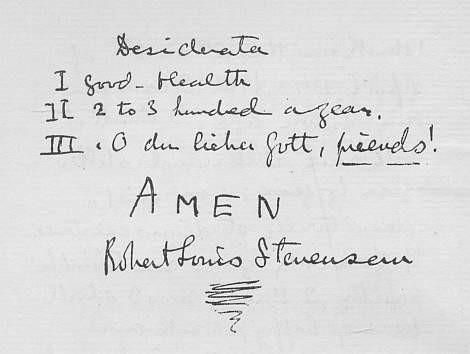 Desiderata
I good-Health
II 2 to 3 hundred a year.
III . O du lieber Gott, friends!
AMEN
Robert Louis Stevenson